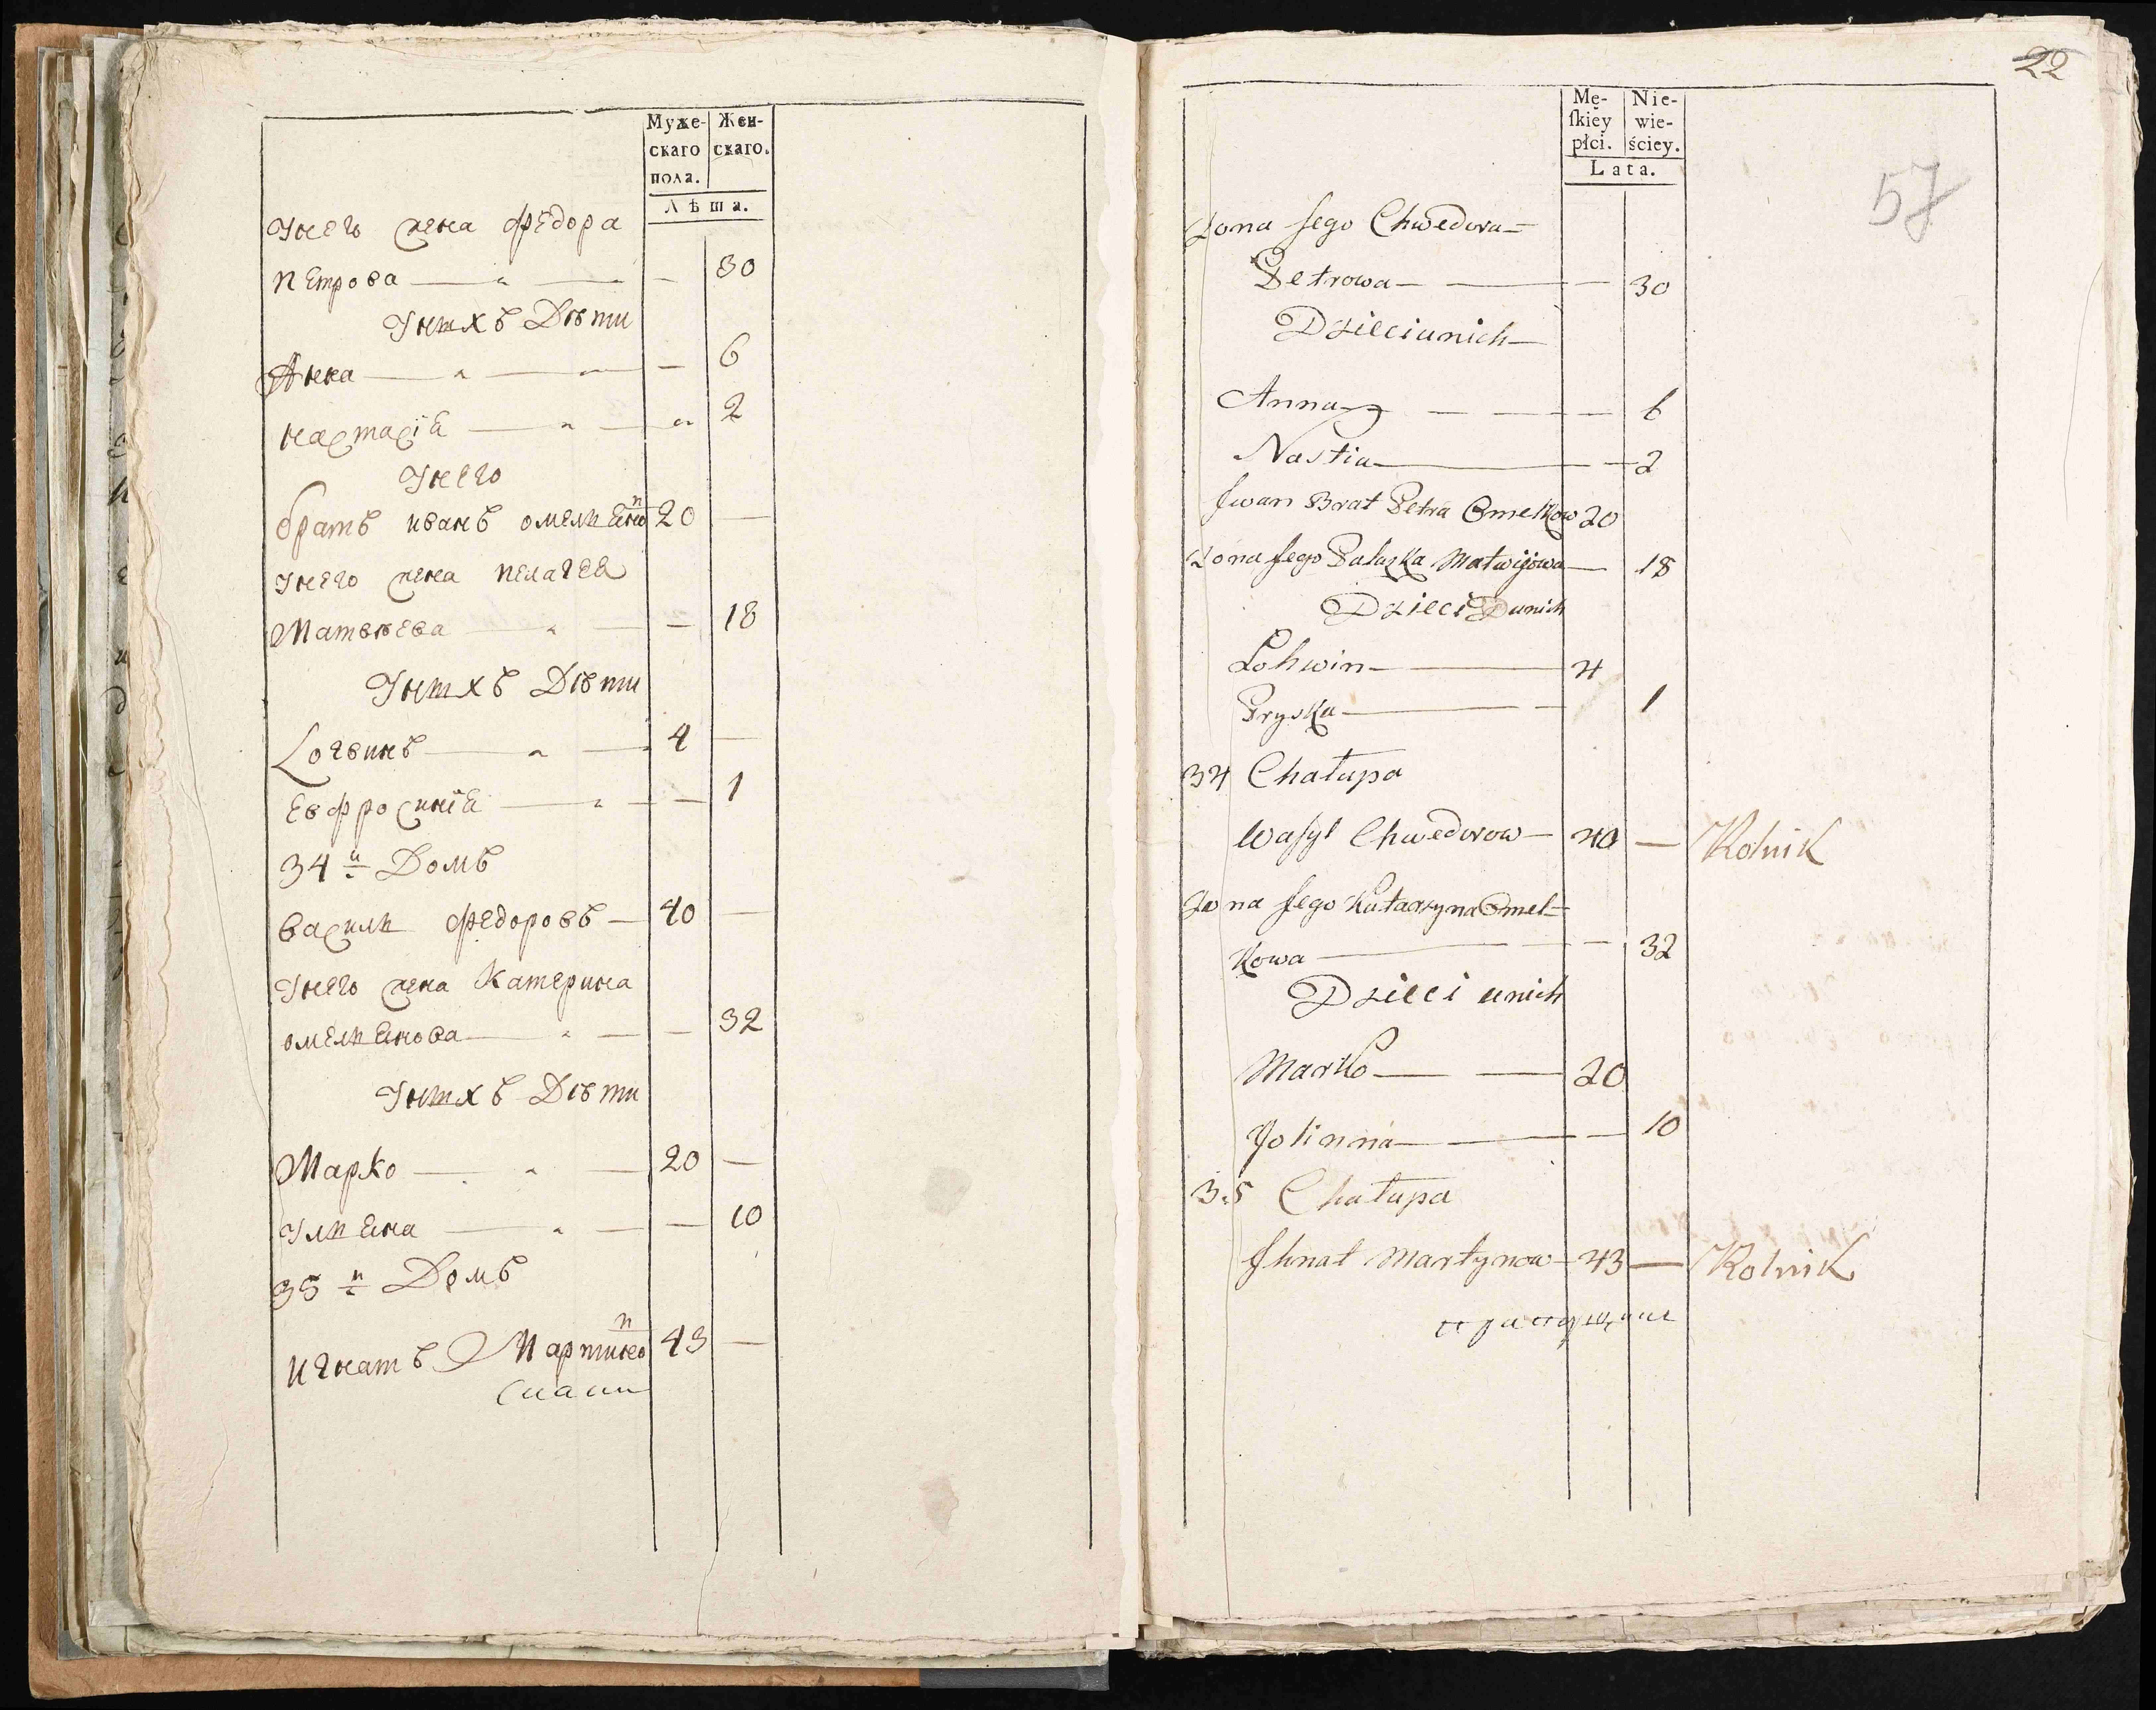 Муже-
скаго
пола.
Жен-
скаго.
Лѣта.
Унего жена Федора
Петрова — — — 30
Унихъ Дѣти
Анна — — — 6
Настасія — — — 2
Унего
братъ иванъ омельяно[в] 20 —
Унего жена пелагея
Матвѣева — — — 18
Унихъ Дѣти
Логвинъ — — 4 —
Евфросинія — — — 1
34й Домъ
Василь Федоровъ — 40 —
Унего жена Катерина
омельянова — — — 32
Унихъ Дѣти
Марко — — 20 —
Ульяна — — — 10
35й Домъ
Игнатъ Мартино[в] 43 —
22
57
Mę-
ſkiey
płci.
Nie-
wie-
ściey.
Lata.
Żona Jego Chwedora=
Petrowa — — — 30
Dzieci unich —
Anna — — — 6
Nastia — — 2
Jwan Brat Petra Omelkow 20
Żona Jego Palaszka Matwijowa — 18
Dzieci unich
Lohwin — — 4
Pryska — — 1
34 Chałupa
Waſyl Chwedorow — 40 — Rolnik
Żona Jego Katarzyna Omel=
kowa — — — 32
Dzieci unich
Marko — — 20
Jolinna — — — 10
35 Chałupa
Jhnat Martynow — 43 — Rolnik